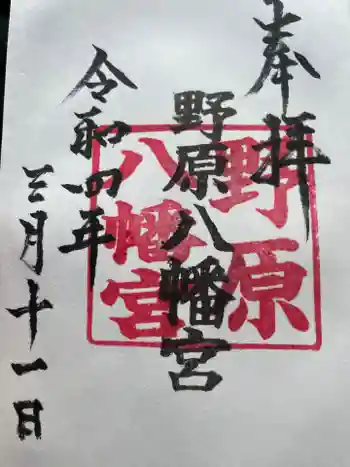 奉拝
野原八幡宮
令和四年
三月十一日
野原
八幡宮